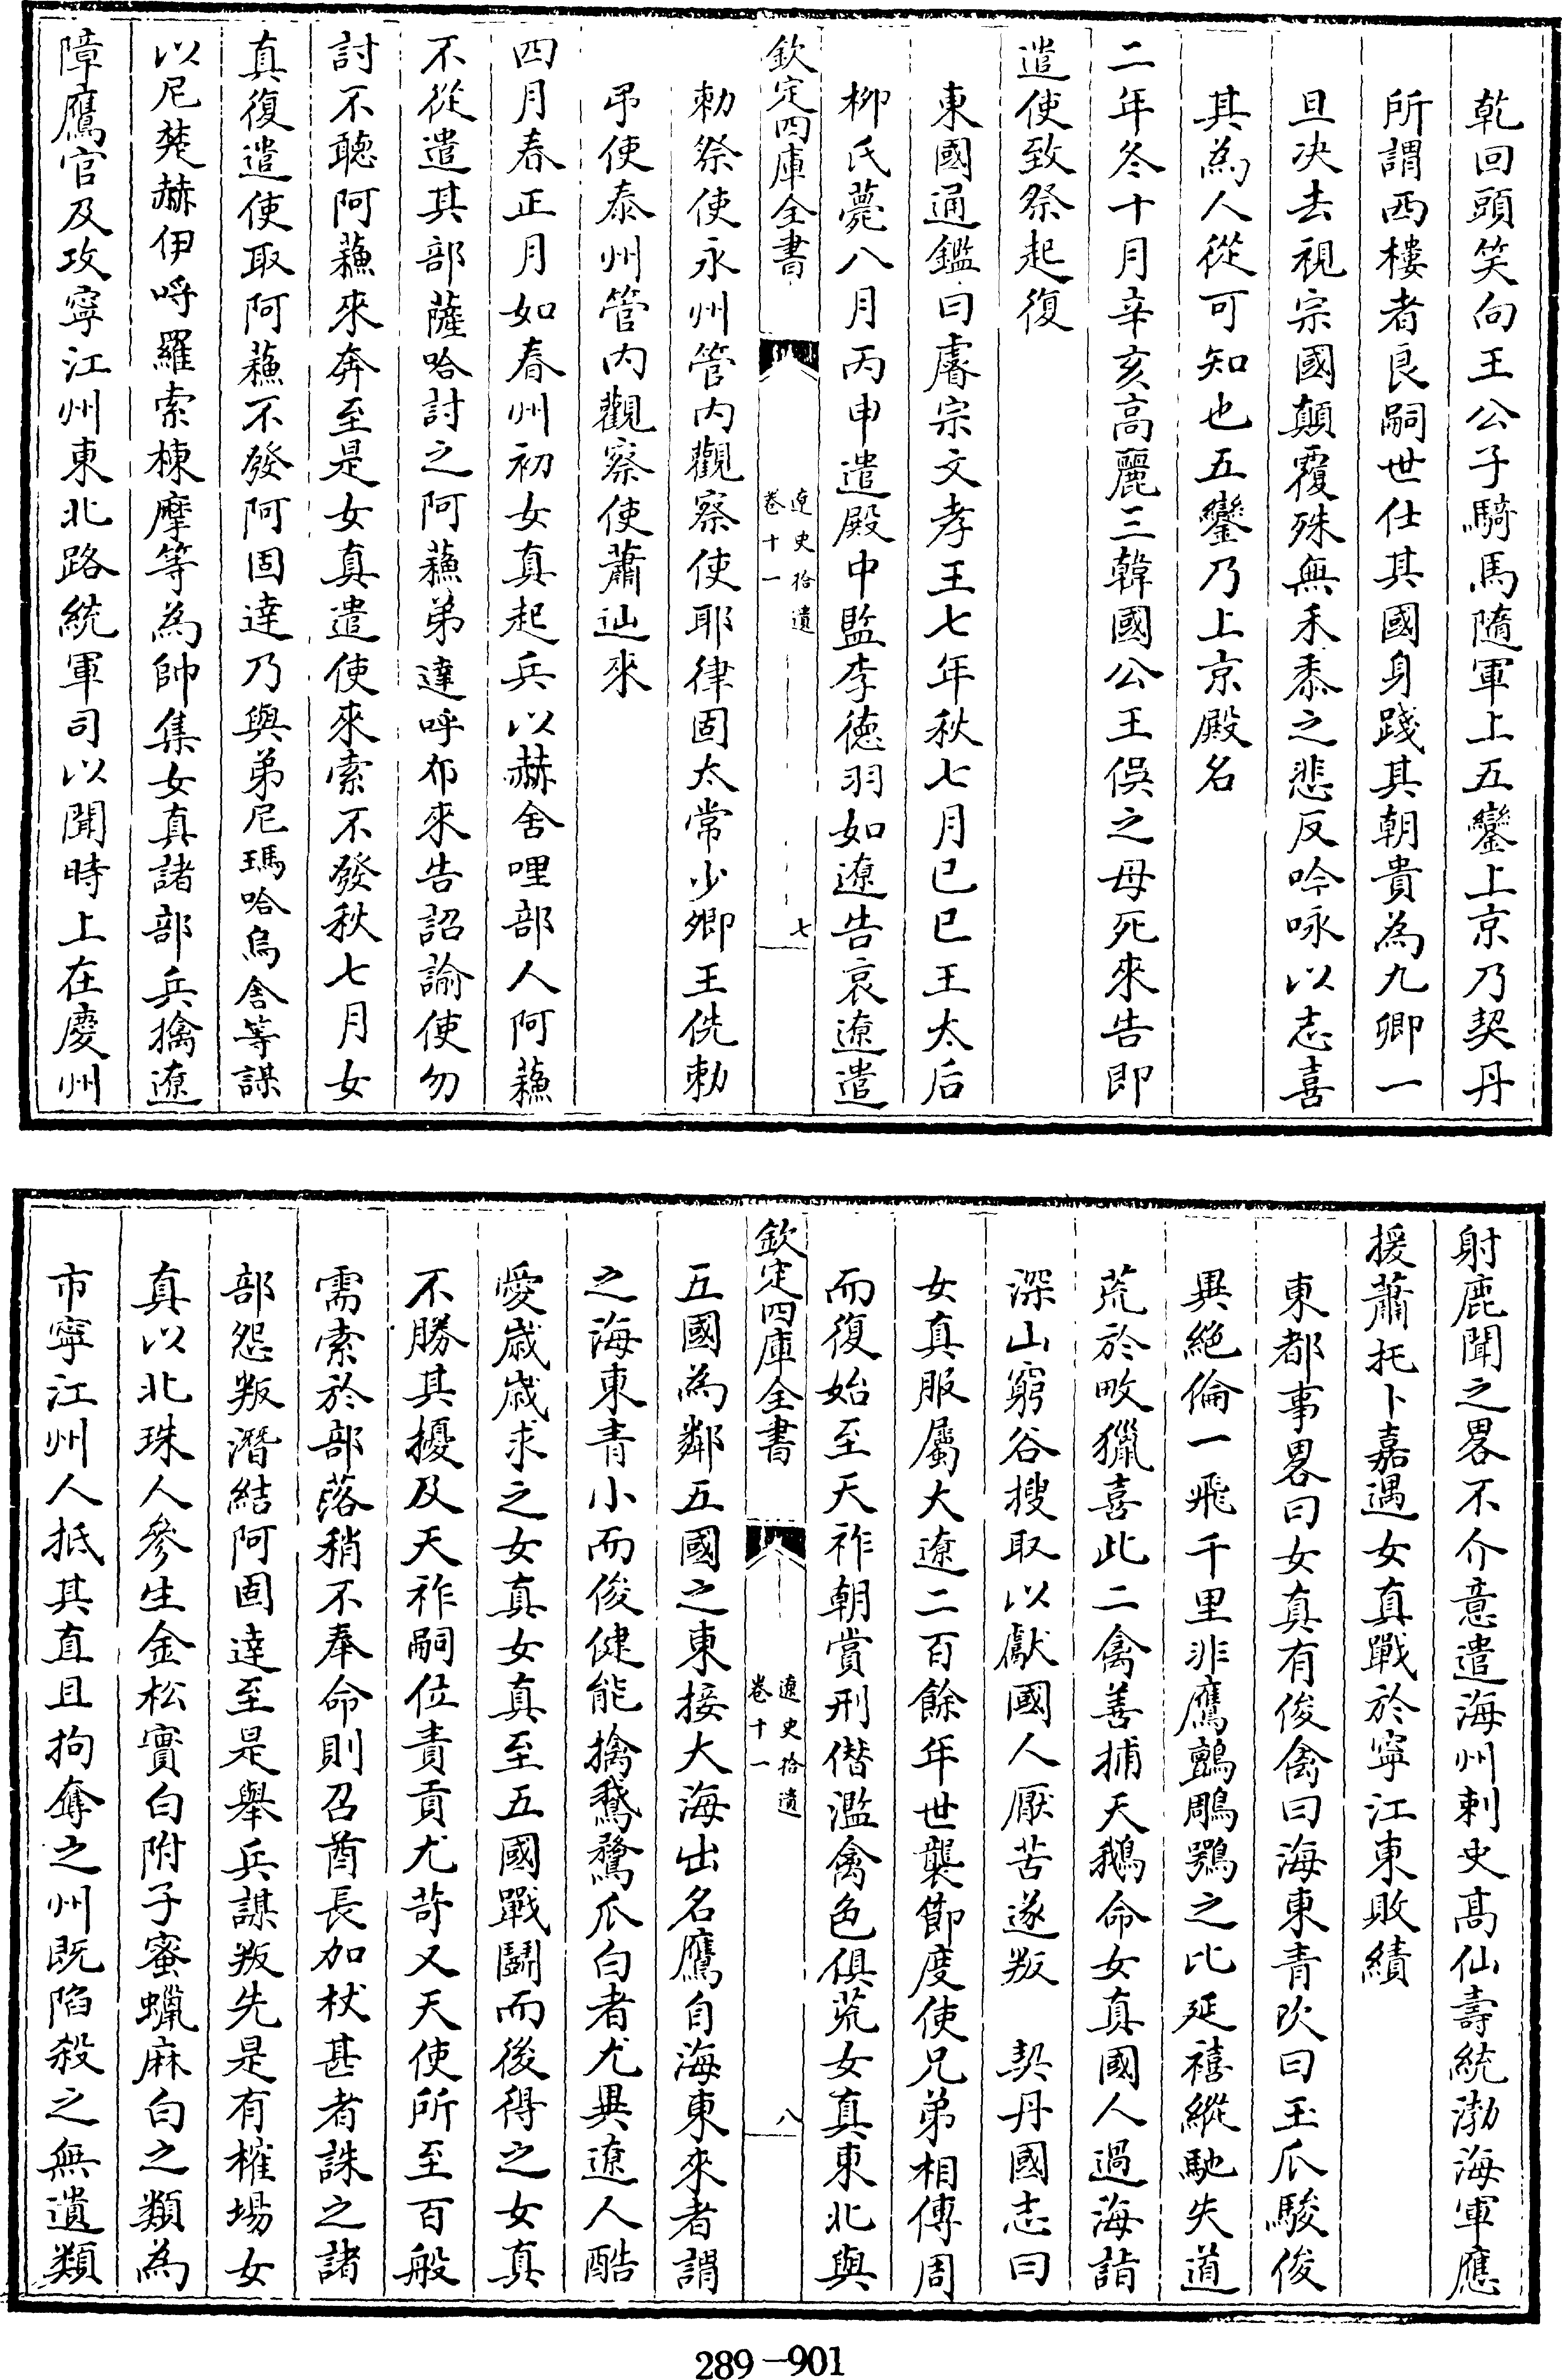 乾回頭笑向王公子騎馬隨軍上五鑾上京乃契丹
所謂西樓者良嗣世仕其國身踐其朝貴為九卿一
旦决去視宗國顛覆殊無禾黍之悲反吟咏以志喜
其為人從可知也五鑾乃上京殿名
二年冬十月辛亥高麗三韓國公王俁之母死來告即
遣使致祭起復
東國通鑑曰睿宗文孝王七年秋七月已巳王太后
柳氏薨八月丙申遣殿中監李德羽如遼告哀遼遣
欽定四庫全書
遼史拾遺
卷十一
七
勅祭使永州管内觀察使耶律固太常少卿王侁勅
弔使泰州管内觀察使蕭辿來
四月春正月如春州初女真起兵以赫舍哩部人阿蘓
不從遣其部薩哈討之阿蘓弟達呼布來告詔諭使勿
討不聽阿蘓來奔至是女真遣使來索不發秋七月女
真復遣使取阿蘓不發阿固達乃與弟尼瑪哈烏舍等謀
以尼楚赫伊呼羅索棟摩等為帥集女真諸部兵擒遼
障鷹官及攻寧江州東北路統軍司以聞時上在慶州
射鹿聞之畧不介意遣海州刺史髙仙壽統渤海軍應
援蕭托卜嘉遇女真戰於寧江東敗績
東都事畧曰女真有俊禽曰海東青次曰玉爪駿俊
異絶倫一飛千里非鷹鸇鵰鶚之比延禧縱馳失道
荒於畋獵喜此二禽善捕天鵝命女真國人過海詣
深山窮谷搜取以獻國人厭苦遂叛　契丹國志曰
女真服屬大遼二百餘年世襲節度使兄弟相傳周
而復始至天祚朝賞刑僭濫禽色俱荒女真東北與
欽定四庫全書
遼史拾遺
卷十一
八
五國為鄰五國之東接大海出名鷹自海東來者謂
之海東青小而俊健能擒鵞鶩爪白者尤異遼人酷
愛歲歲求之女真女真至五國戰鬭而後得之女真
不勝其擾及天祚嗣位責貢尤苛又天使所至百般
需索於部落稍不奉命則召酋長加杖甚者誅之諸
部怨叛潛結阿固達至是舉兵謀叛先是有榷場女
真以北珠人參生金松實白附子蜜蠟麻白之類為
市寧江州人抵其直且拘奪之州既陷殺之無遺類
289-901